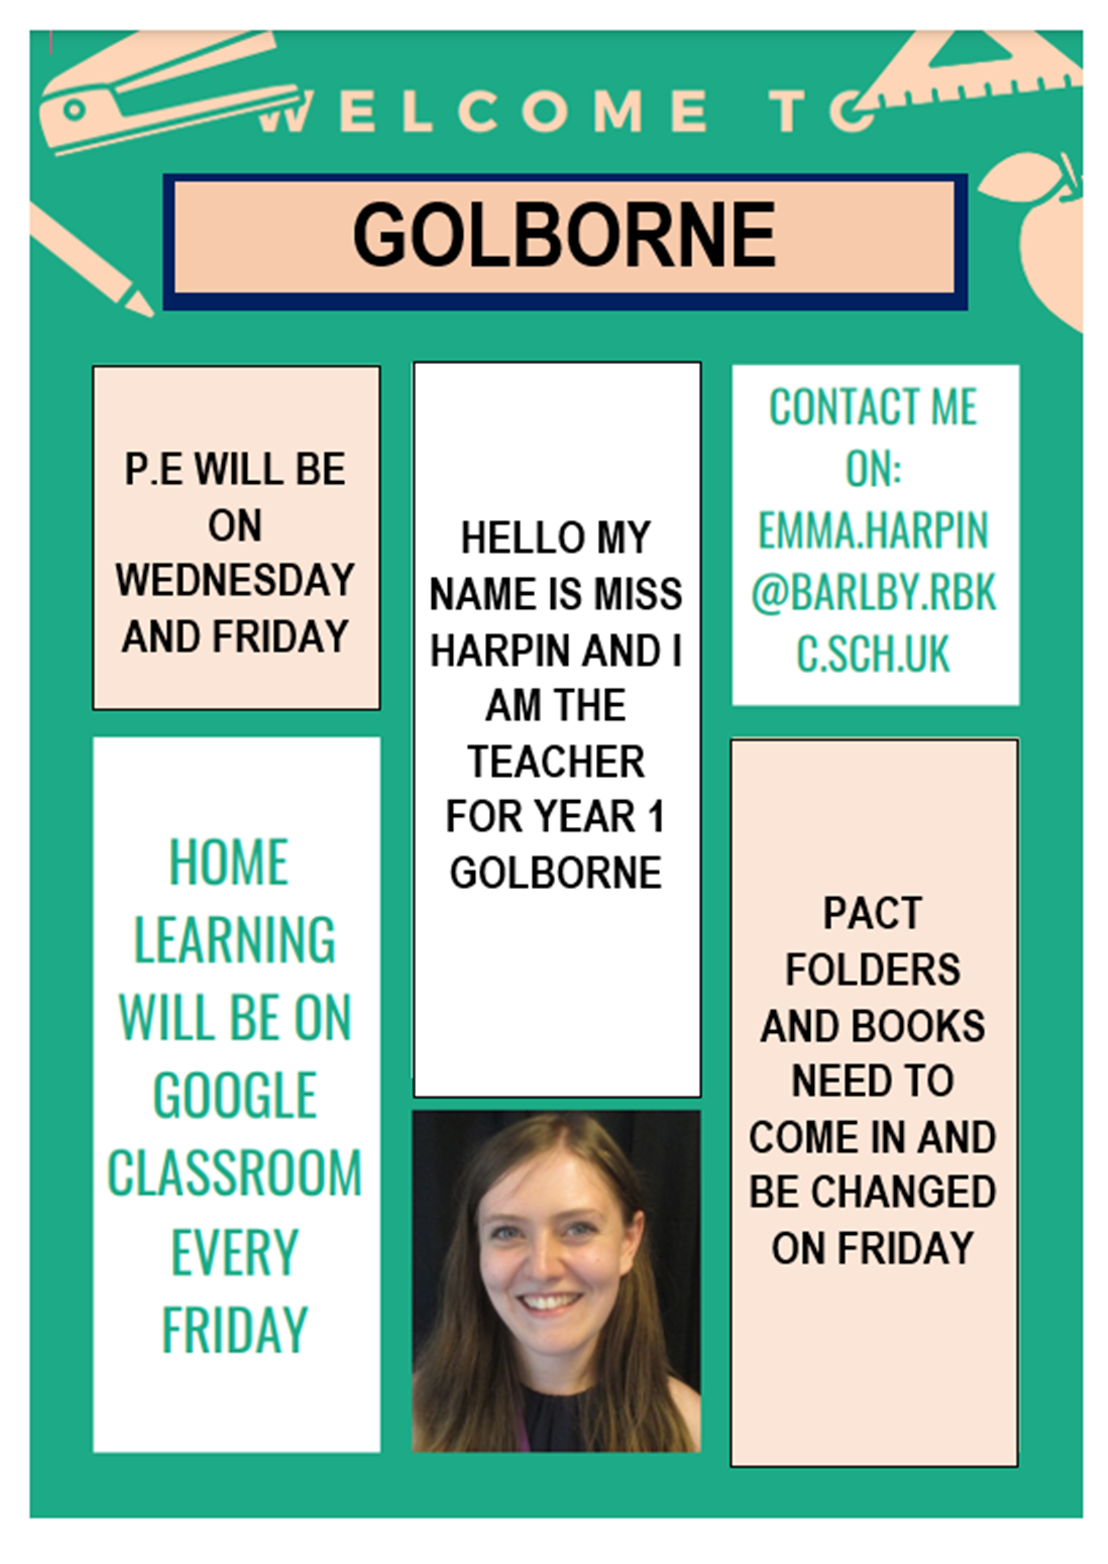 WELCOME TO
GOLBORNE
P.E WILL BE
ON
WEDNESDAY
AND FRIDAY
HELLO MY
NAME IS MISS
HARPIN AND I
AM THE
TEACHER
FOR YEAR 1
GOLBORNE
CONTACT ME
ON:
EMMA.HARPIN
@BARLBY.RBK
C.SCH.UK
HOME
LEARNING
WILL BE ON
GOOGLE
CLASSROOM
EVERY
FRIDAY
PACT
FOLDERS
AND BOOKS
NEED TO
COME IN AND
BE CHANGED
ON FRIDAY